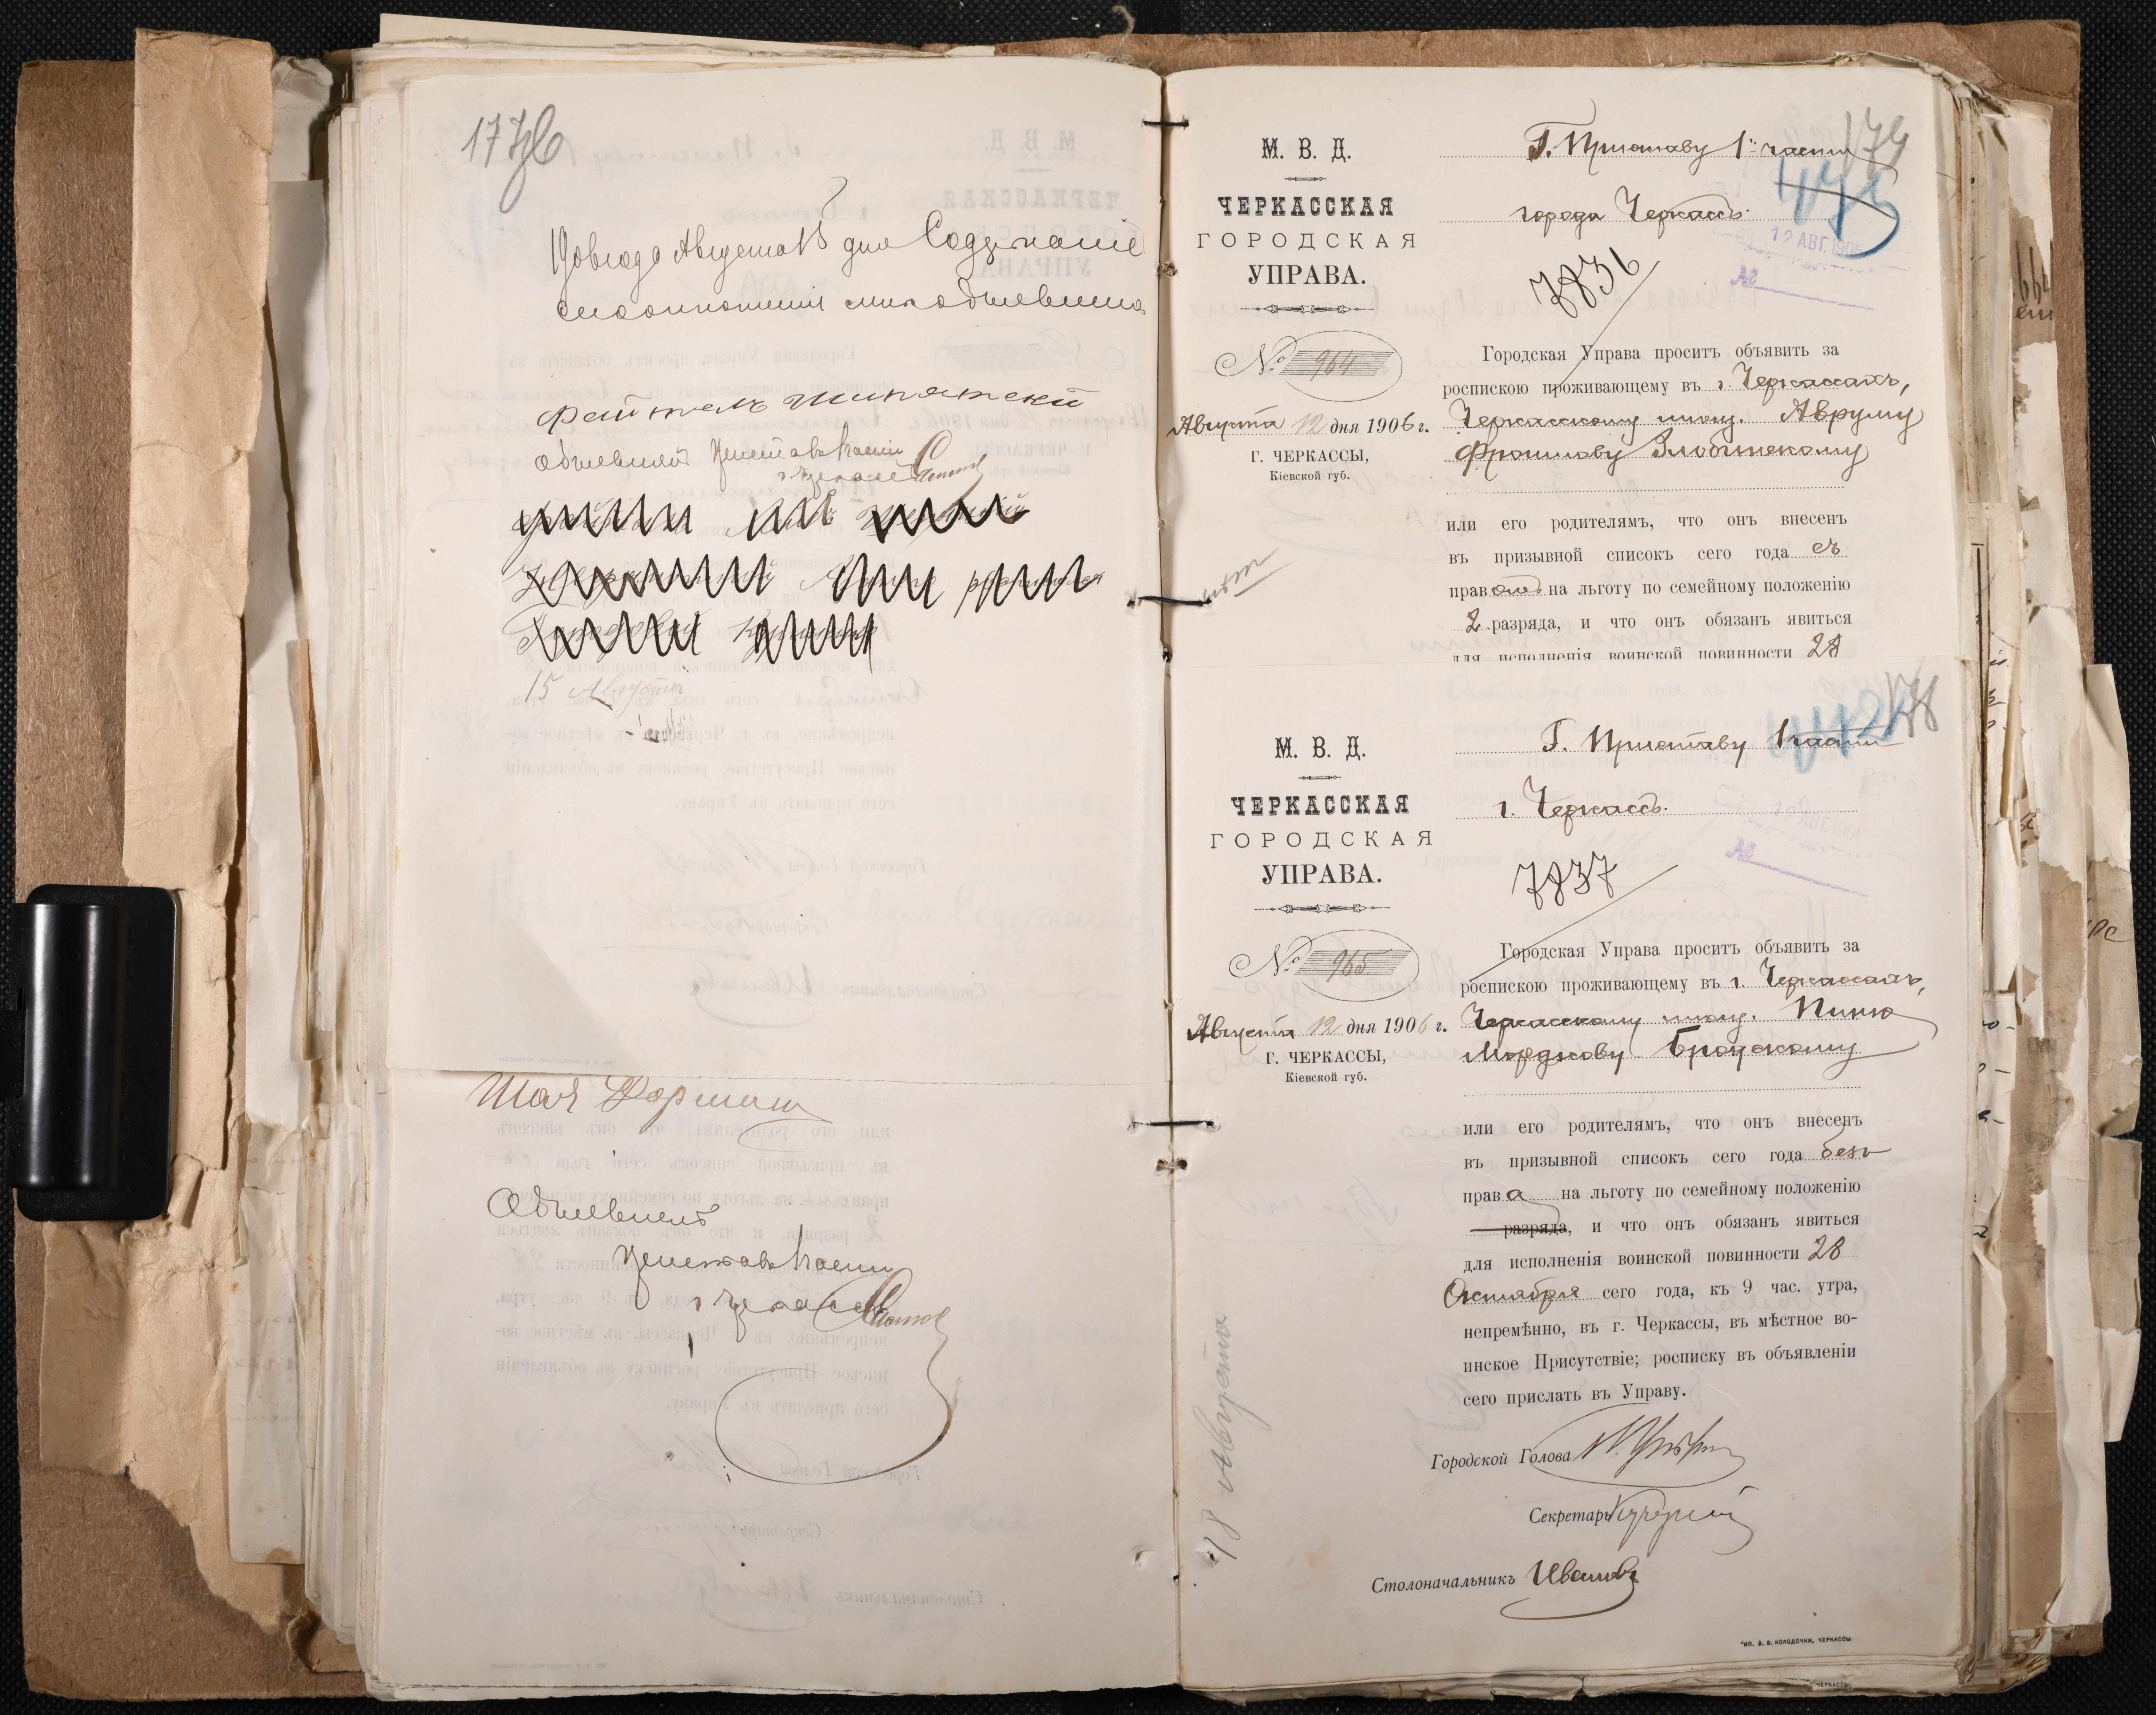 177об
1906 года Августа 15 дня Содержаніе
сего отношенія мнѣ объявлено
Объявилъ Приставъ 1 части
г. Черкассъ
15 Августа
Шая
Объявилъ
Приставъ 1 части
г. Черкассъ
М. В. Д.
ЧЕРКАССКАЯ
ГОРОДСКАЯ
УПРАВА.
№ 964
Августа 12 дня 1906 г.
Г. ЧЕРКАССЫ,
Кіевской губ.
Г. Приставу 1й части
города Черкассъ.
12 АВГ. 1906
№
7836
Городская Управа проситъ объявить за
роспискою проживающему въ г. Черкассахъ,
Черкасскому мѣщ. Авруму
Фроимову Злобинскому
или его родителямъ, что онъ внесенъ
въ призывной списокъ сего года съ
правомъ на льготу по семейному положенію
2 разряда, и что онъ обязанъ явиться
для исполненія воинской повинности 28
нѣтъ
М. В. Д.
ЧЕРКАССКАЯ
ГОРОДСКАЯ
УПРАВА.
№ 965
Августа 12 дня 1906 г.
Г. ЧЕРКАССЫ,
Кіевской губ.
178
Г. Приставу 1 части
г. Черкассъ.
№
7837
Городская Управа проситъ объявить за
роспискою проживающему въ г. Черкассахъ,
Черкасскому мѣщ. Пиню
Мордкову Бродскому
или его родителямъ, что онъ внесенъ
въ призывной списокъ сего года безъ
права на льготу по семейному положенію
разряда, и что онъ обязанъ явиться
для исполненія воинской повинности 28
Октября сего года, къ 9 час. утра,
непремѣнно, въ г. Черкассы, въ мѣстное во-
инское Присутствіе; росписку въ объявленіи
сего прислать въ Управу.
Городской Голова
Секретарь
Столоначальникъ Ивановъ
18 Августа
ТИП. В. В. КОЛОДОЧКИ, ЧЕРКАССЫ.
ЧЕРКАССЫ